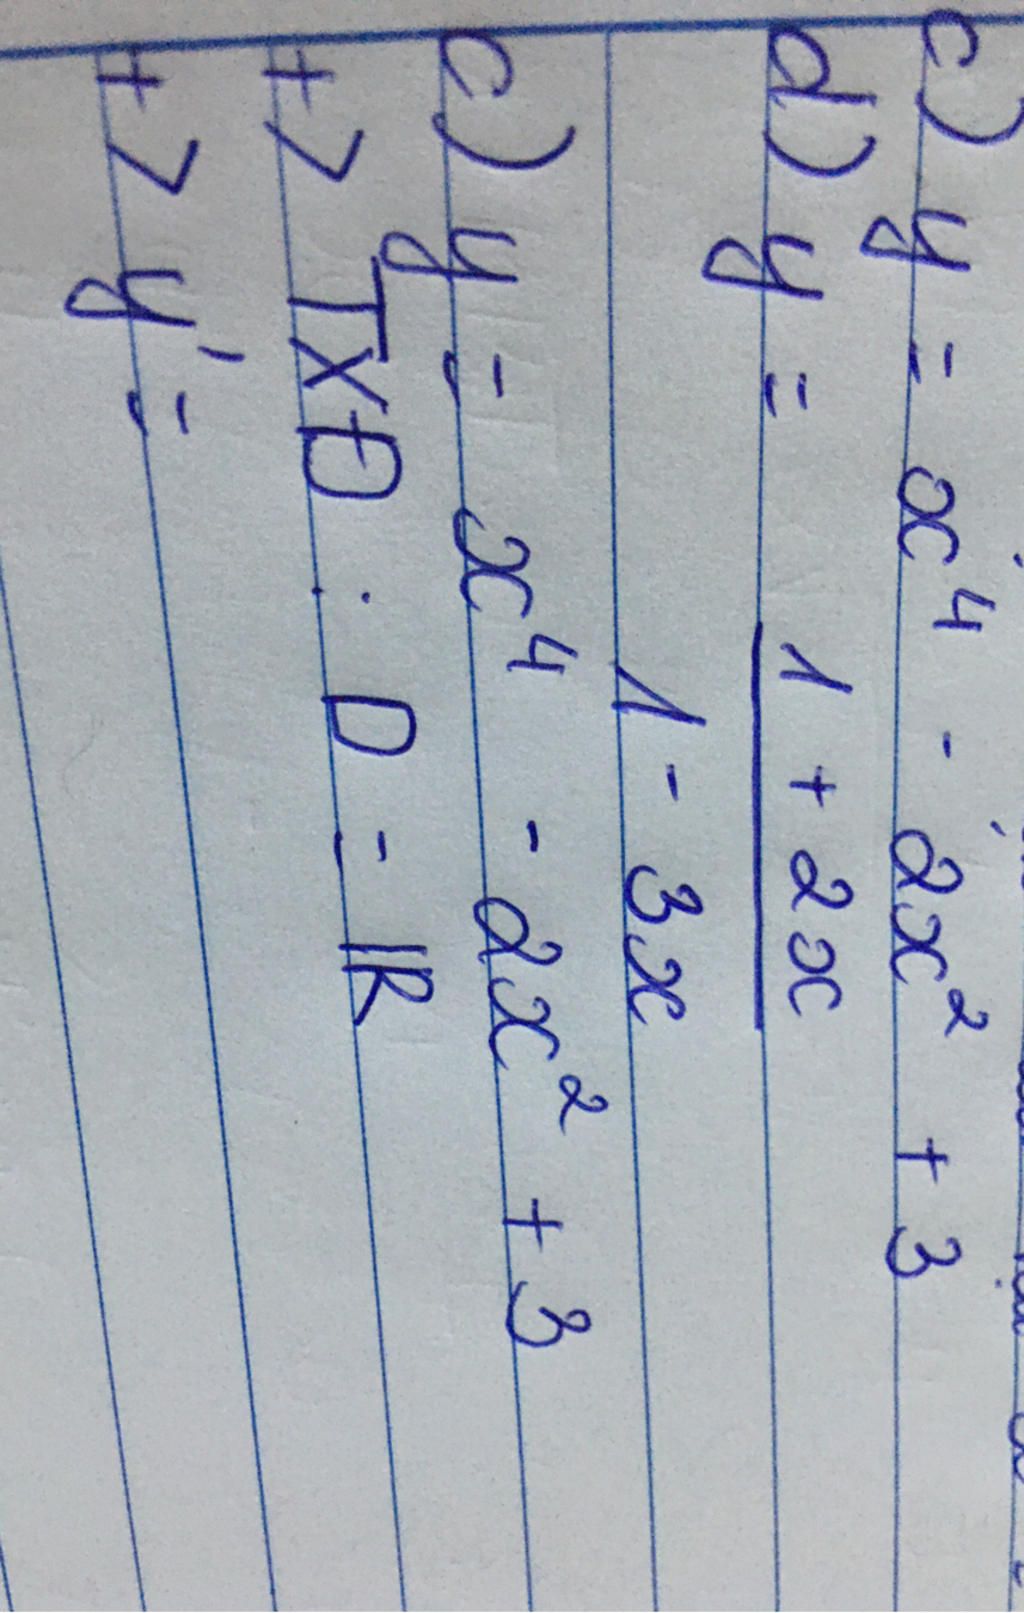 c) y = x⁴ - 2x² + 3
d) y = 1 + 2x
1 - 3x
c) y = x⁴ - 2x² + 3
+> TXĐ : D = ℝ
+> y' =